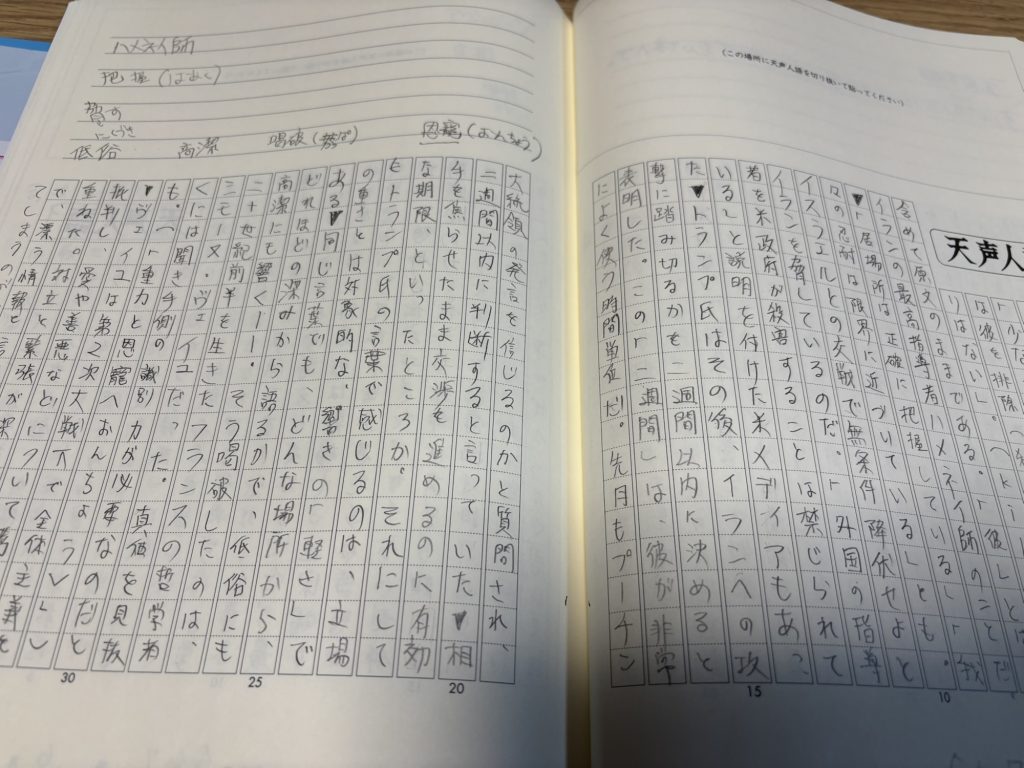 天声人
含めて原文のままである。
イランの最高指導者ハメネイ師のことだ
▼「居場所は正確に把握している」。「我
々の忍耐は限界に近づいている」とも。
イスラエルとの交戦で無条件降伏せよと
イランを脅しているのだ。外国の指導
者を米政府が殺害することは禁じられて
いると説明を付けた米メディアもあっ
た▼トランプ氏はその後、イランへの攻
撃に踏み切るかを二週間以内に決めると
表明した。この「二週間」は、彼が非常
によく使う時間単位だ。先月もプーチン
10
15
(この場所に天声人語を切り抜いて貼ってください)
ハメネイ師
把握(はあく)
低俗 高潔 喝破 恩寵(おんちょう)
大統領の発言を信じるのかと質問され、
二週間以内に判断すると言っていた▼相
手を焦らせたまま交渉を進めるのに有効
な期限、といったところか。それにして
もトランプ氏の言葉で感じるのは、立場
の重さとは対象的な、響きの「軽さ」で
ある▼同じ言葉でも、どんな場所から、
どれほどの深みから語るかで、低俗にも
高潔にも響くーー。そう喝破したのは、
二十世紀前半を生きたフランスの哲学者
シモーヌ・ヴェイユだった。真価を見抜
くには聞き手側の識別力が必要なのだと
も。「重力と恩寵へおんちょう
▼ヴェイユは第2次大戦下で全体主義を
批判し、愛や善悪などについて
重ねた。対立と緊張が
で、漂う情報と言
てしまうの
20
25
30